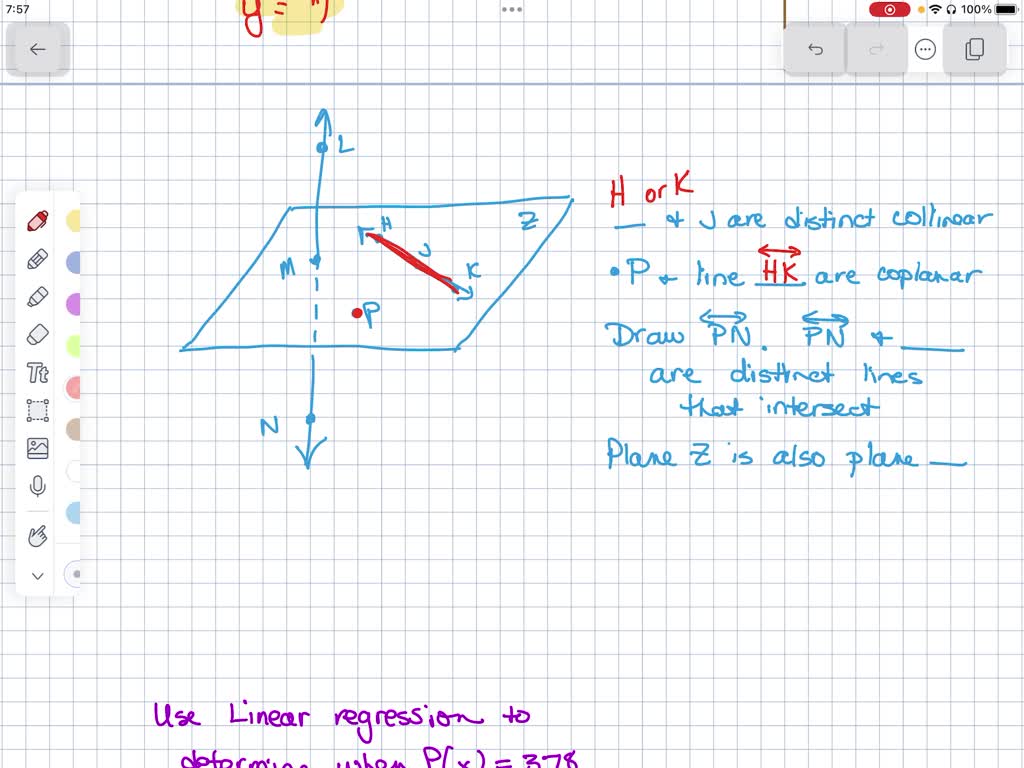 7:57
100%
y =
L
H
Z
J
M
K
P
N
H or K
__ & J are distinct collinear
• P & line HK are coplanar
Draw PN. PN & ____
are distinct lines
that intersect
Plane Z is also plane __
Tt
Use Linear regression to
determine when P(x) = 378